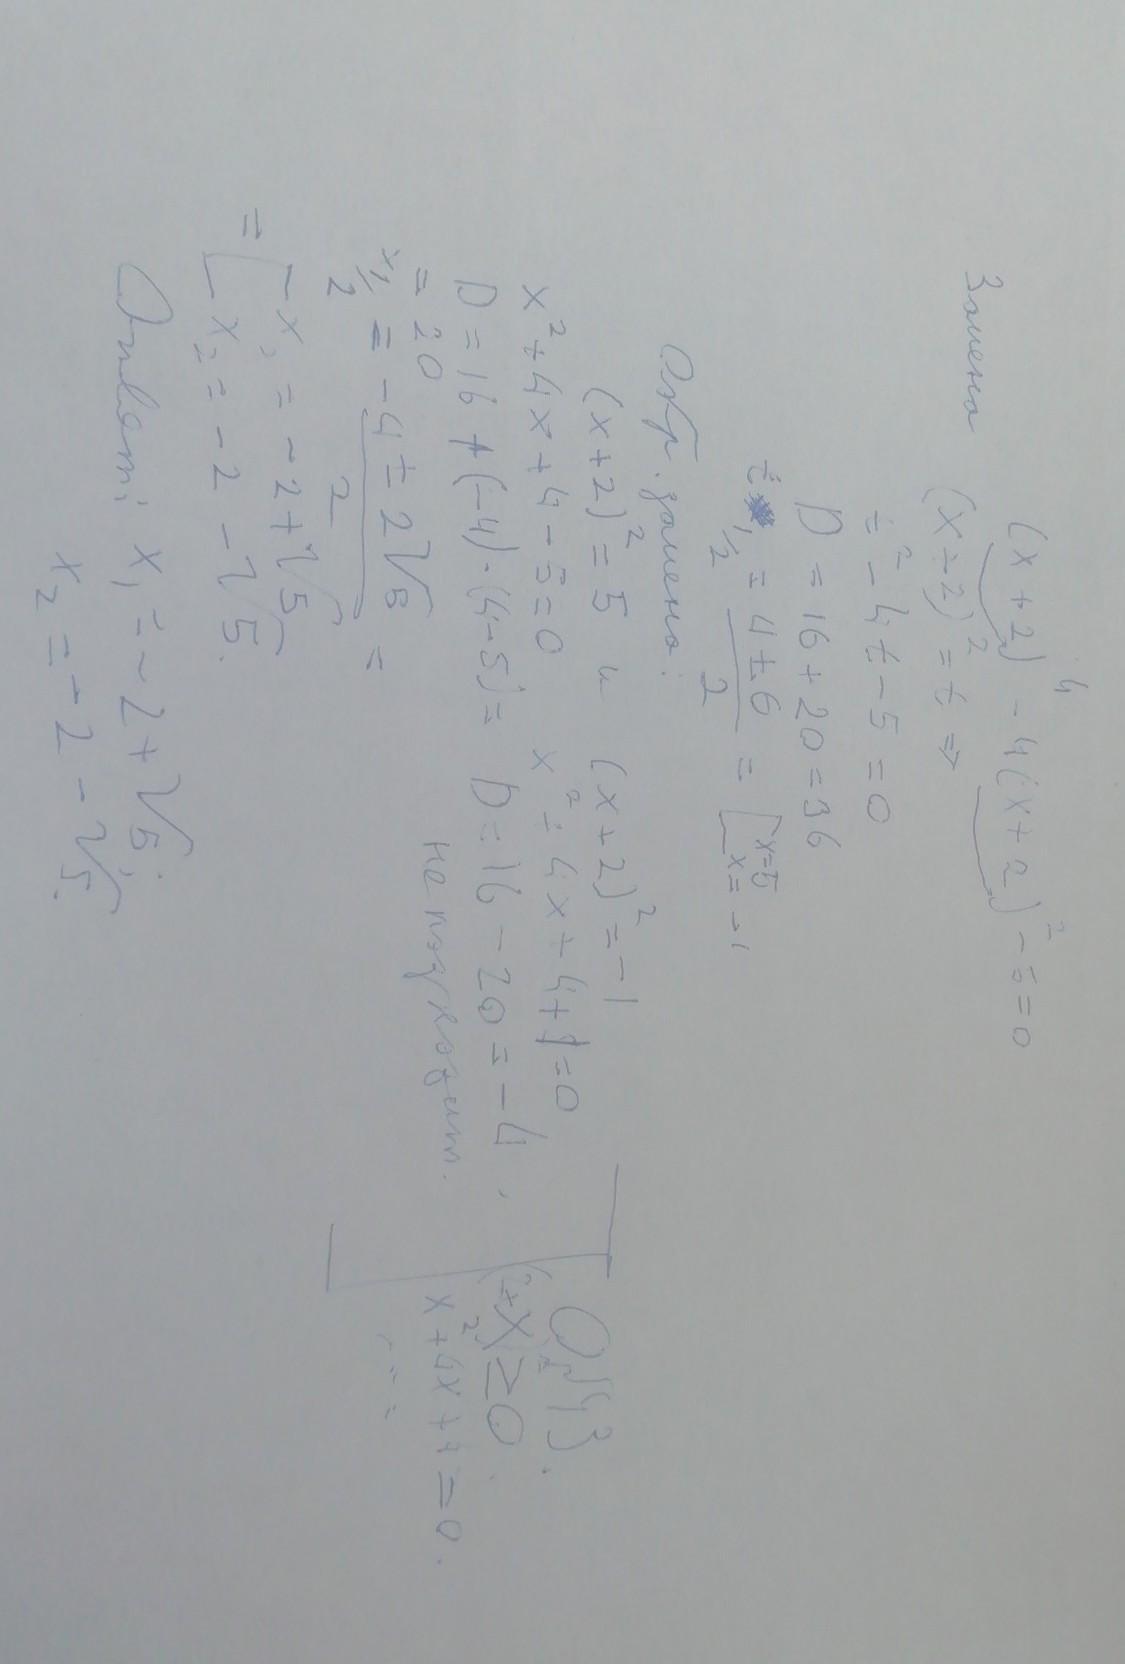 (x+2)⁴ - 4(x+2)² - 5 = 0
Замена (x+2)² = t ⇒
t² - 4t - 5 = 0
D = 16 + 20 = 36
t½ = (4 ± 6)/2 = [x=5 x=-1
Обр. замена:
(x+2)² = 5 и (x+2)² = -1
x² + 4x + 4 - 5 = 0 x² + 4x + 4 + 1 = 0
D = 16 + (-4)·(4-5) = D = 16 - 20 = -4
= 20 не подходит.
x½ = (-4 ± 2√5)/2 =
= [x₁ = -2+√5
x₂ = -2 -√5.
Ответ: x₁ = -2+√5;
x₂ = -2 - √5.
ОДЗ.
≥ 0
x² + 4x + 4 = 0.